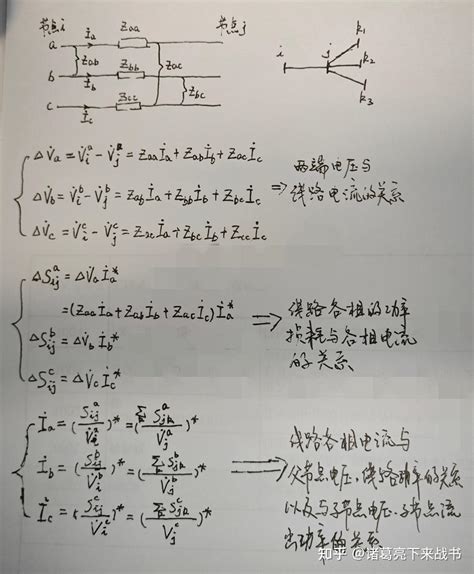 节点i 节点j
a İa Zaa
Zab Zac
b İb Zbb
Zbc
c İc Zcc
i j k1
k2
k3
ΔV̇a = V̇i^a - V̇j^a = Zaa İa + Zab İb + Zac İc
ΔV̇b = V̇i^b - V̇j^b = Zab İa + Zbb İb + Zbc İc
ΔV̇c = V̇i^c - V̇j^c = Zac İa + Zbc İb + Zcc İc
⇒ 两端电压与
线路电流的关系
ΔSij^a = ΔV̇a İa*
= (Zaa İa + Zab İb + Zac İc) İa*
ΔSij^b = ΔV̇b İb*
ΔSij^c = ΔV̇c İc*
⇒ 线路各相的功率
损耗与各相电流
的关系
İa = (Sij^a / V̇i^a)* = (Σ Sjk^a / V̇j^a)*
İb = (Sij^b / V̇i^b)* = (Σ Sjk^b / V̇j^b)*
İc = (Sij^c / V̇i^c)* = (Σ Sjk^c / V̇j^c)*
⇒ 线路各相电流与
父节点电压、线路功率的关系
以及与子节点电压、子节点流
出功率的关系
知乎 @诸葛亮下来战书